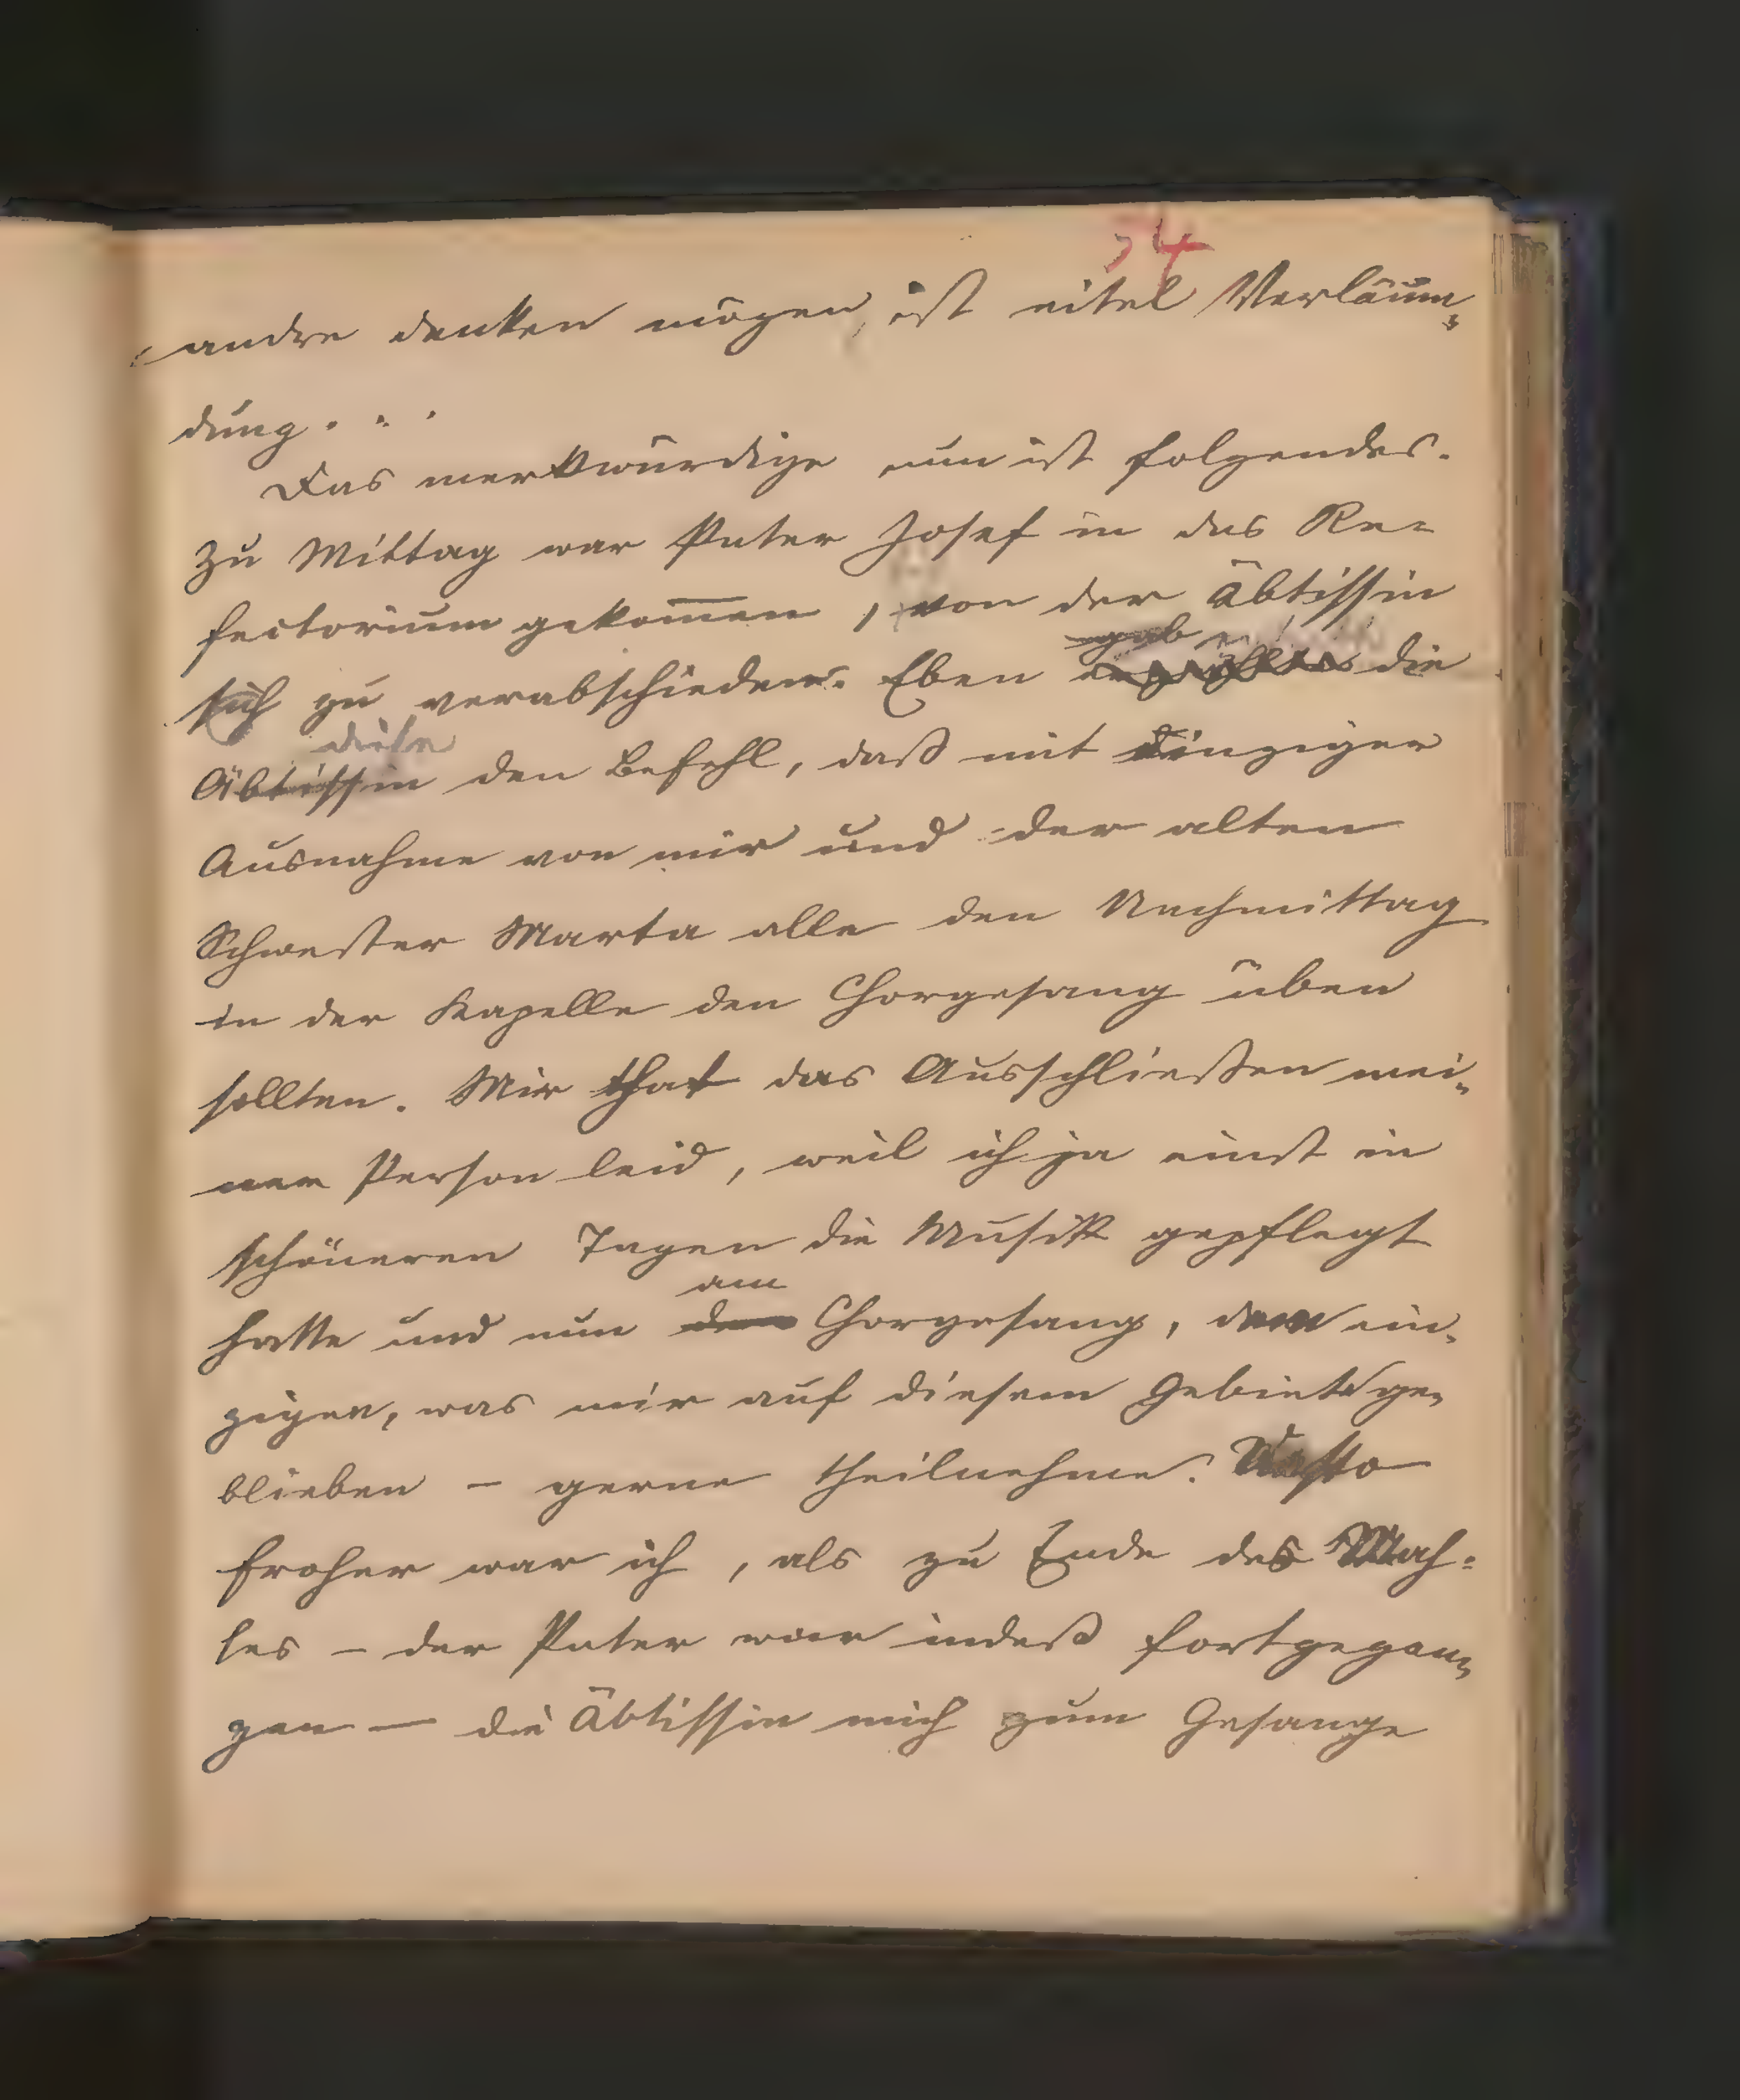 54
andre denken mögen, ist eitel Verläum-
dung. . .
Das merkwürdige nun ist folgendes.
Zu Mittag war Pater Josef in das Re-
fectorium gekommen, von der Äbtissin
gab
sich zu verabschieden. Eben die
diese
Äbtissin den Befehl, daß mit einziger
Ausnahme von mir und der alten
Schwester Marta alle den Nachmittag
in der Kapelle den Chorgesang üben
sollten. Mir that das Ausschließen mei-
ner Person leid, weil ich ja einst in
schöneren Tagen die Musik gepflegt
am
hatte und nun dem Chorgesang, dem ein-
zigen, was mir auf diesem Gebiete ge-
blieben – gerne theilnehme. Desto
froher war ich, als zu Ende des Mah-
les – der Pater war indeß fortgegan-
gen – die Äbtissin mich zum Gesange